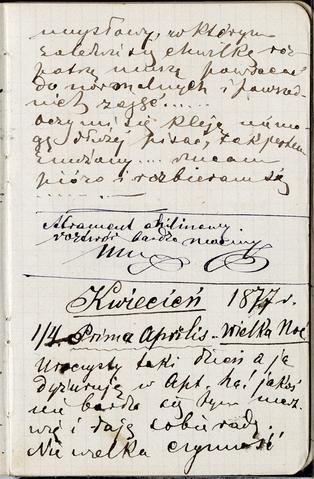 umysłowy, w którym
zaledwie tę chwilkę roz
patrz muszę powracać
do normalnych i powsze
nich zajęć......
oczy mi się kleją nie mo
gę dłużej pisać, tak jestem
znużony.... rzucam
pióro i rozbieram się
Atrament anilinowy
roztwór bardzo mocny
Kwiecień 1877 r.
1/4 Prima Aprilis - Wielka Noc
Uroczysty taki dzień a ja
dyżuruję w Apt. ha! jakoś
nie bardzo się tym
i daję sobie radę.
Nie wielka czynność